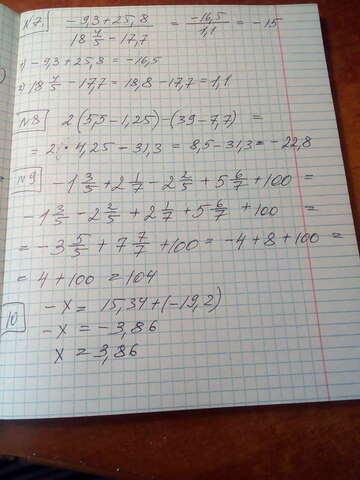 №7. (-9,3+25,8)/(18 4/5-17,7) = -16,5/1,1 = -15
1) -9,3+25,8 = -16,5
2) 18 4/5 - 17,7 = 18,8 - 17,7 = 1,1
№8 2(5,5-1,25)-(39-7,7) =
= 2 · 4,25 - 31,3 = 8,5-31,3 = -22,8
№9 -1 3/5 + 2 1/7 - 2 2/5 + 5 6/7 + 100 =
-1 3/5 - 2 2/5 + 2 1/7 + 5 6/7 + 100 =
= -3 5/5 + 7 7/7 + 100 = -4 + 8 + 100 =
= 4 + 100 = 104
10 -x = 15,34+(-19,2)
-x = -3,86
x = 3,86